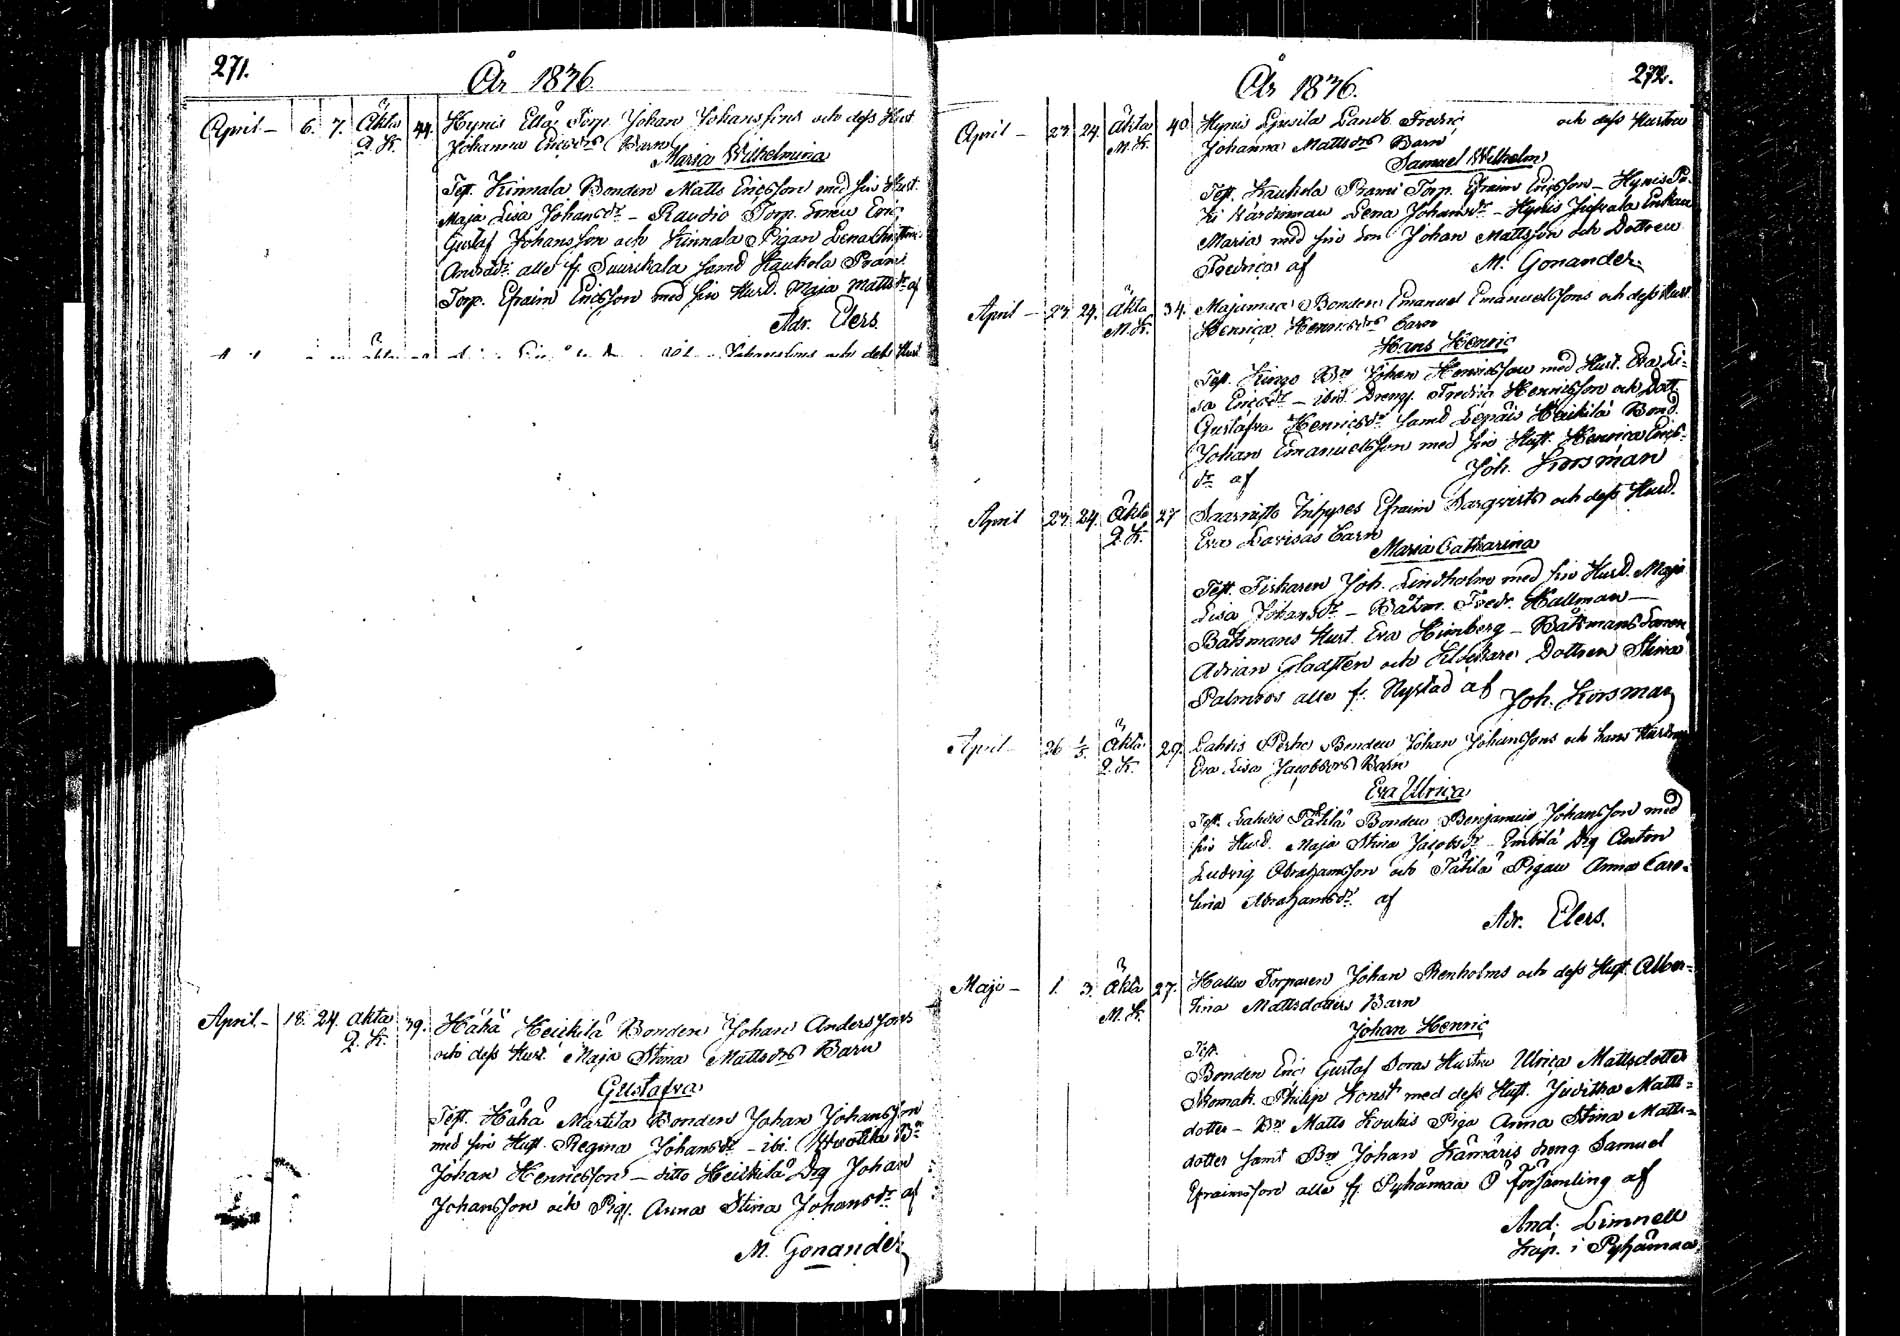 271.
År 1836.
April – 6. 7. Äkta 44. Hynis Ellä Torp. Johan Johanssons och dess Hust
Q. K. Johanna Ericsdrs Barn
Maria Wilhelmina
Test. Kinnala Bonden Matts Ericsson med sin Hust.
Maja Lisa Johansdr – Raudio Torp. Sonen Eric
Gustaf Johansson och Kinnala Pigan Lena
alle fr. Suurikala samt Kaukola Prami
Torp. Efraim Ericsson med sin Hust. Maja Mattsdr af
Adr. Elers.
Johanssons och dess Hust
April – 18. 24. Äkta 39. Hähä Heickilä Bonden Johan Anderssons
Q. K. och dess Hust. Maja Stina Mattsdrs Barn
Gustafva
Test. Hähä Martila Bonden Johan Johansson
med sin Hust. Regina Johansdr – ibi. Br
Johan Henricsson – ditto Heickilä Drg Johan
Johansson och Pig. Anna Stina Johansdr af
M. Gonander
År 1836.
272.
April – 23 24. Äkta 40. Hynis Fredric och dess Hustru
M. K. Johanna Mattsdrs Barn
Samuel Wilhelm
Test. Kaukola Prami Torp. Efraim Ericsson – Hynis
Lena Johansdr – Hynis Enkan
Maria med sin Son Johan Mattsson och Dottren
Fredrica af M. Gonander
April – 23 24. Äkta 34. Majamaa Bonden Emanuel Emanuelssons och dess Hust.
M. K. Henrica Henricsdrs barn
Hans Henric
Test. Br Johan Henricsson med Hust. Eva Li-
sa Ericsdr – ibid. Dreng. Fredric Henricsson och Dott
Gustafva Henricsdr samt Lepäis Heickilä Bond.
Johan Emanuelsson med sin Hust. Henrica Erics-
dr af Joh. Korsman
April 23 24. Äkta 27 Inhyses Efraim och dess Hust.
Q. K. Eva Lovisas barn
Maria Catharina
Test. Fiskaren Joh. Lindholm med sin Hust. Maja
Lisa Johansdr – Båtsm. Fredr. Hallman –
Båtsmans Hust. Eva Himberg – Båtsmans Sonen
Adrian Gladsten och Dottren Stina
Palmros alle fr. Nystad af Joh. Korsman
April – 26 1/5. Äkta 29. Lahdis Perho Bonden Johan Johanssons och hans Hustru
Q. K. Eva Lisa Jacobsdrs Barn
Eva Ulrica
Test. Lahdis Tätilä Bonden Benjamin Johansson med
sin Hust. Maja Stina Jacobsdr – Drg Anton
Ludvig Abrahamsson och Tätilä Pigan Anna Caro-
lina Abrahamsdr af
Adr. Elers.
Maji – 1. 3. Äkta 27. Hallu Torparen Johan Renholms och dess Hust. Alber-
M. K. tina Mattsdotters Barn
Johan Henric
Test.
Bonden Eric Gustaf Hustru Ulrica Mattsdotter
Skomak. Philip Konst med dess Hust. Juditha Matts-
dotter – Br Matts Koukis Piga Anna Stina Matts-
dotter samt Br Johan Kämäris dreng Samuel
Efraimsson alle fr. Pyhämaa Ö församling af
And. Limnell
Kap. i Pyhämaa.